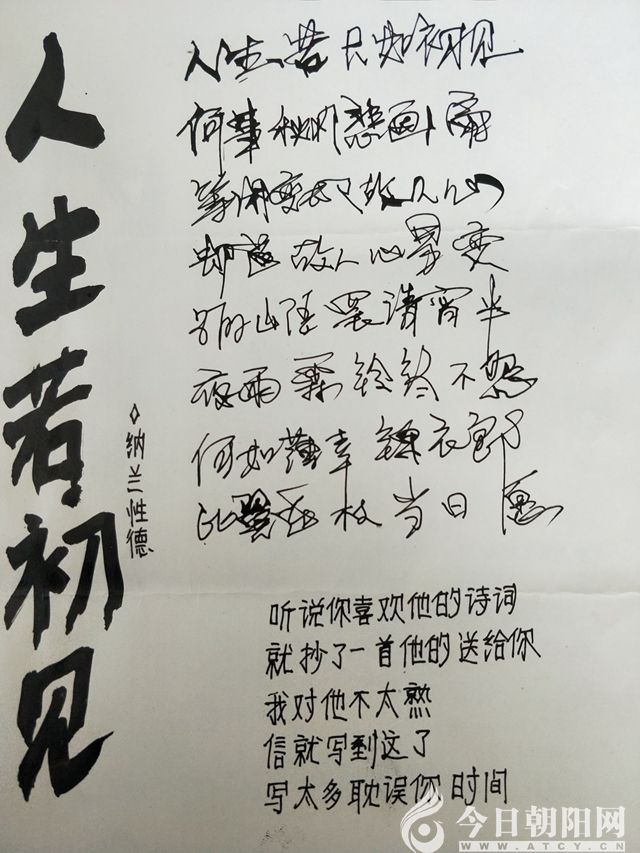 人生若初见
◇纳兰性德
人生若只如初见
何事秋风悲画扇
等闲变却故人心
却道故人心易变
山罢清宵半
夜雨霖铃终不怨
何如薄幸锦衣郎
比翼连枝当日愿
听说你喜欢他的诗词
就抄了一首他的送给你
我对他不太熟
信就写到这了
写太多耽误你时间
今日朝阳网
WWW.ATCY.CN